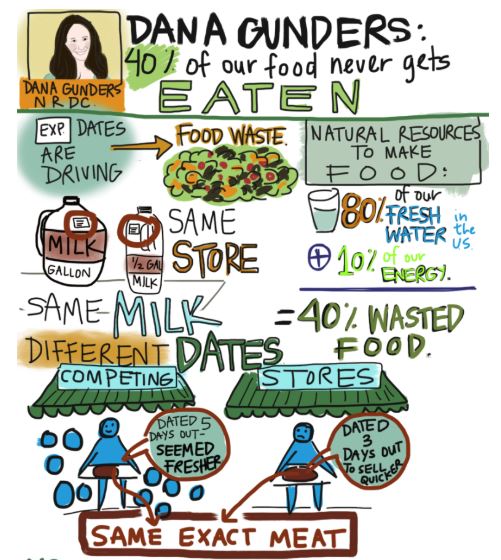 DANA GUNDERS:
40% of our food never gets
EATEN
DANA GUNDERS
NRDC.
EXP. DATES
ARE
DRIVING
FOOD WASTE.
NATURAL RESOURCES
TO MAKE
FOOD:
80% of our
FRESH
WATER in the US.
+ 10% of our
ENERGY.
= 40% WASTED
FOOD.
MILK
GALLON
1/2 GAL
MILK
SAME
STORE
SAME MILK
DIFFERENT DATES
COMPETING STORES
DATED 5
DAYS OUT-
SEEMED
FRESHER
DATED
3
DAYS OUT
TO SELL
QUICKER
SAME EXACT MEAT